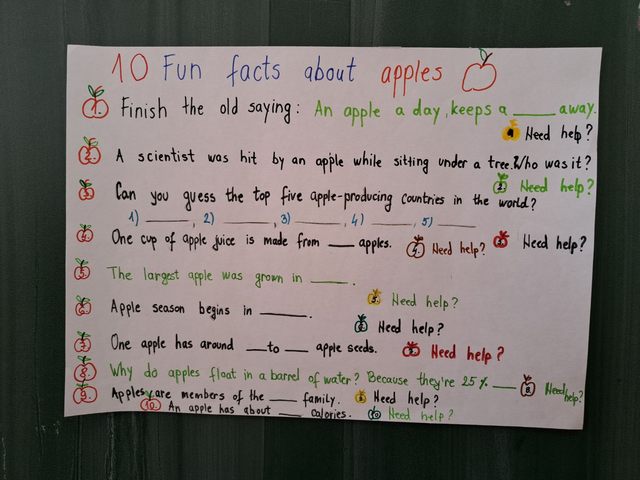 10 Fun facts about apples
1. Finish the old saying: An apple a day, keeps a _____ away.
Need help?
2. A scientist was hit by an apple while sitting under a tree. Who was it?
2. Need help?
3. Can you guess the top five apple-producing countries in the world?
1) _____, 2) _____, 3) _____, 4) _____, 5) _____
3. Need help?
4. One cup of apple juice is made from ___ apples. 4. Need help?
5. The largest apple was grown in _____.
5. Need help?
6. Apple season begins in _____.
6. Need help?
7. One apple has around ___ to ___ apple seeds. Need help?
8. Why do apples float in a barrel of water? Because they're 25% ___ 8. Need help?
9. Apples are members of the ___ family. Need help?
10. An apple has about ___ calories. 10 Need help?